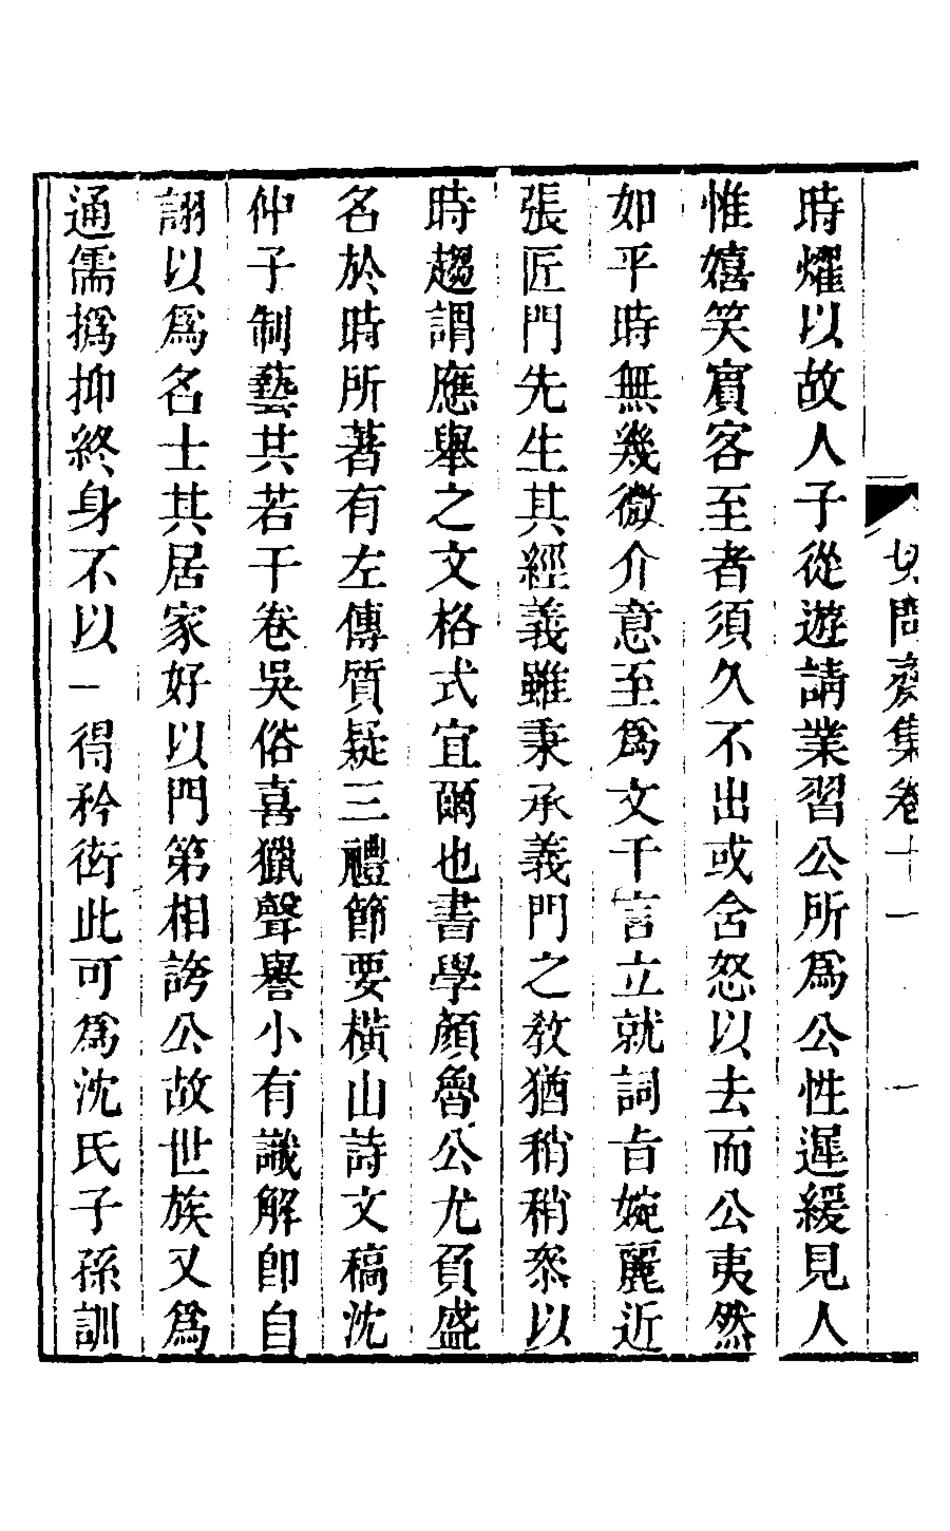 切問齋集卷十一 一
時燿以故人子從遊請業習公所爲公性遲緩見人
惟嬉笑賓客至者須久不出或舍怒以去而公夷然
如平時無幾微介意至爲文千言立就詞旨婉麗近
張匠門先生其經義雖秉承義門之敎猶稍稍叅以
時趨謂應舉之文格式宜爾也書學顏魯公尤負盛
名於時所著有左傳質疑三禮節要橫山詩文稿沈
仲子制藝共若干卷吳俗喜獵聲譽小有識解卽自
詡以爲名士其居家好以門第相誇公故世族又爲
通儒撝抑終身不以一得矜衒此可爲沈氏子孫訓